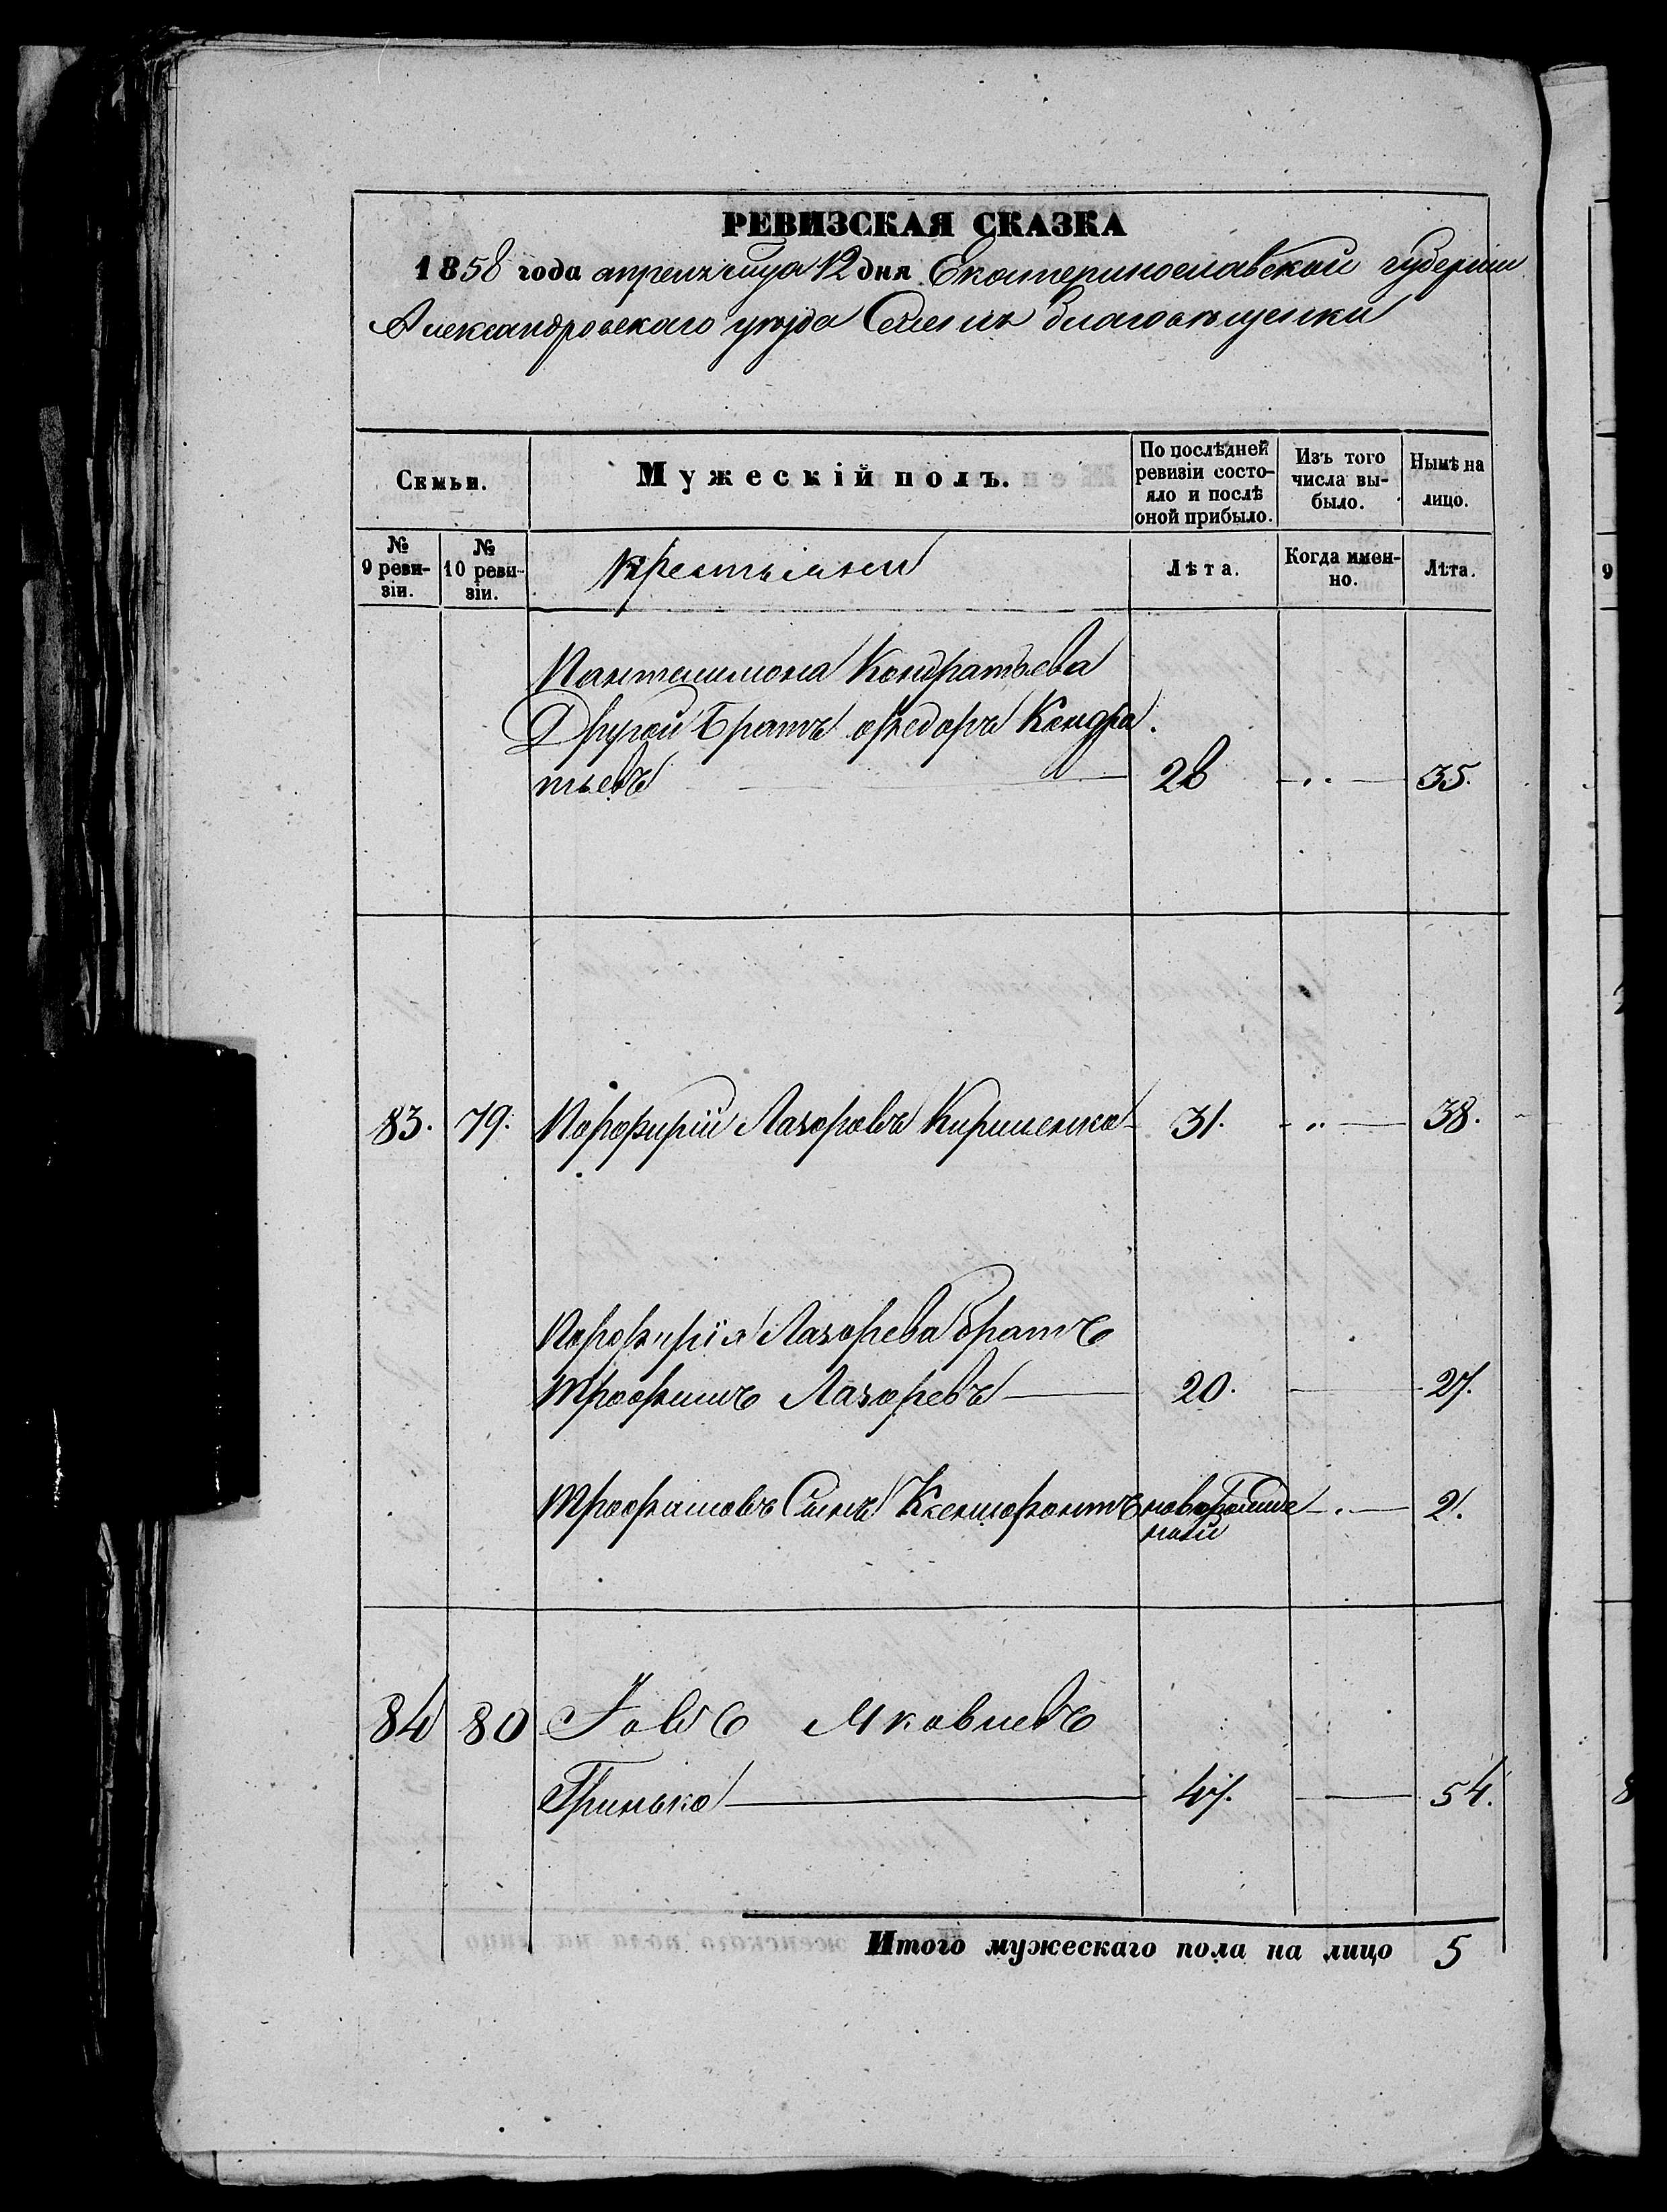 РЕВИЗСКАЯ СКАЗКА
1858 года апреля месяца 12 дня Екатеринославской губернии
Александровскаго уезда Селенія Благовещенки
Семьи.
Мужескій полъ.
По послѣдней ревизіи состо-
яло и послѣ
оной прибыло.
Изъ того
числа вы-
было.
Нынѣ на
лицо.
№
9 реви-
зіи.
№
10 реви-
зіи.
крестьяне
Лѣта.
Когда имен-
но.
Лѣта.
Пантелимона Кондратьева
Другой Братъ Федоръ Кондра
тьевъ 28 35.
83. 79. Порфирій Лазоровъ Кириленко 31. 38.
Порфирія Лазорева братъ
Трофимъ Лазоревъ 20. 27.
Трофимовъ Сынъ Ксенофонтъ новорожде 2.
ный
84 80 Іовъ Яковлевъ
Гринько 47. 54.
Итого мужескаго пола на лицо 5
9